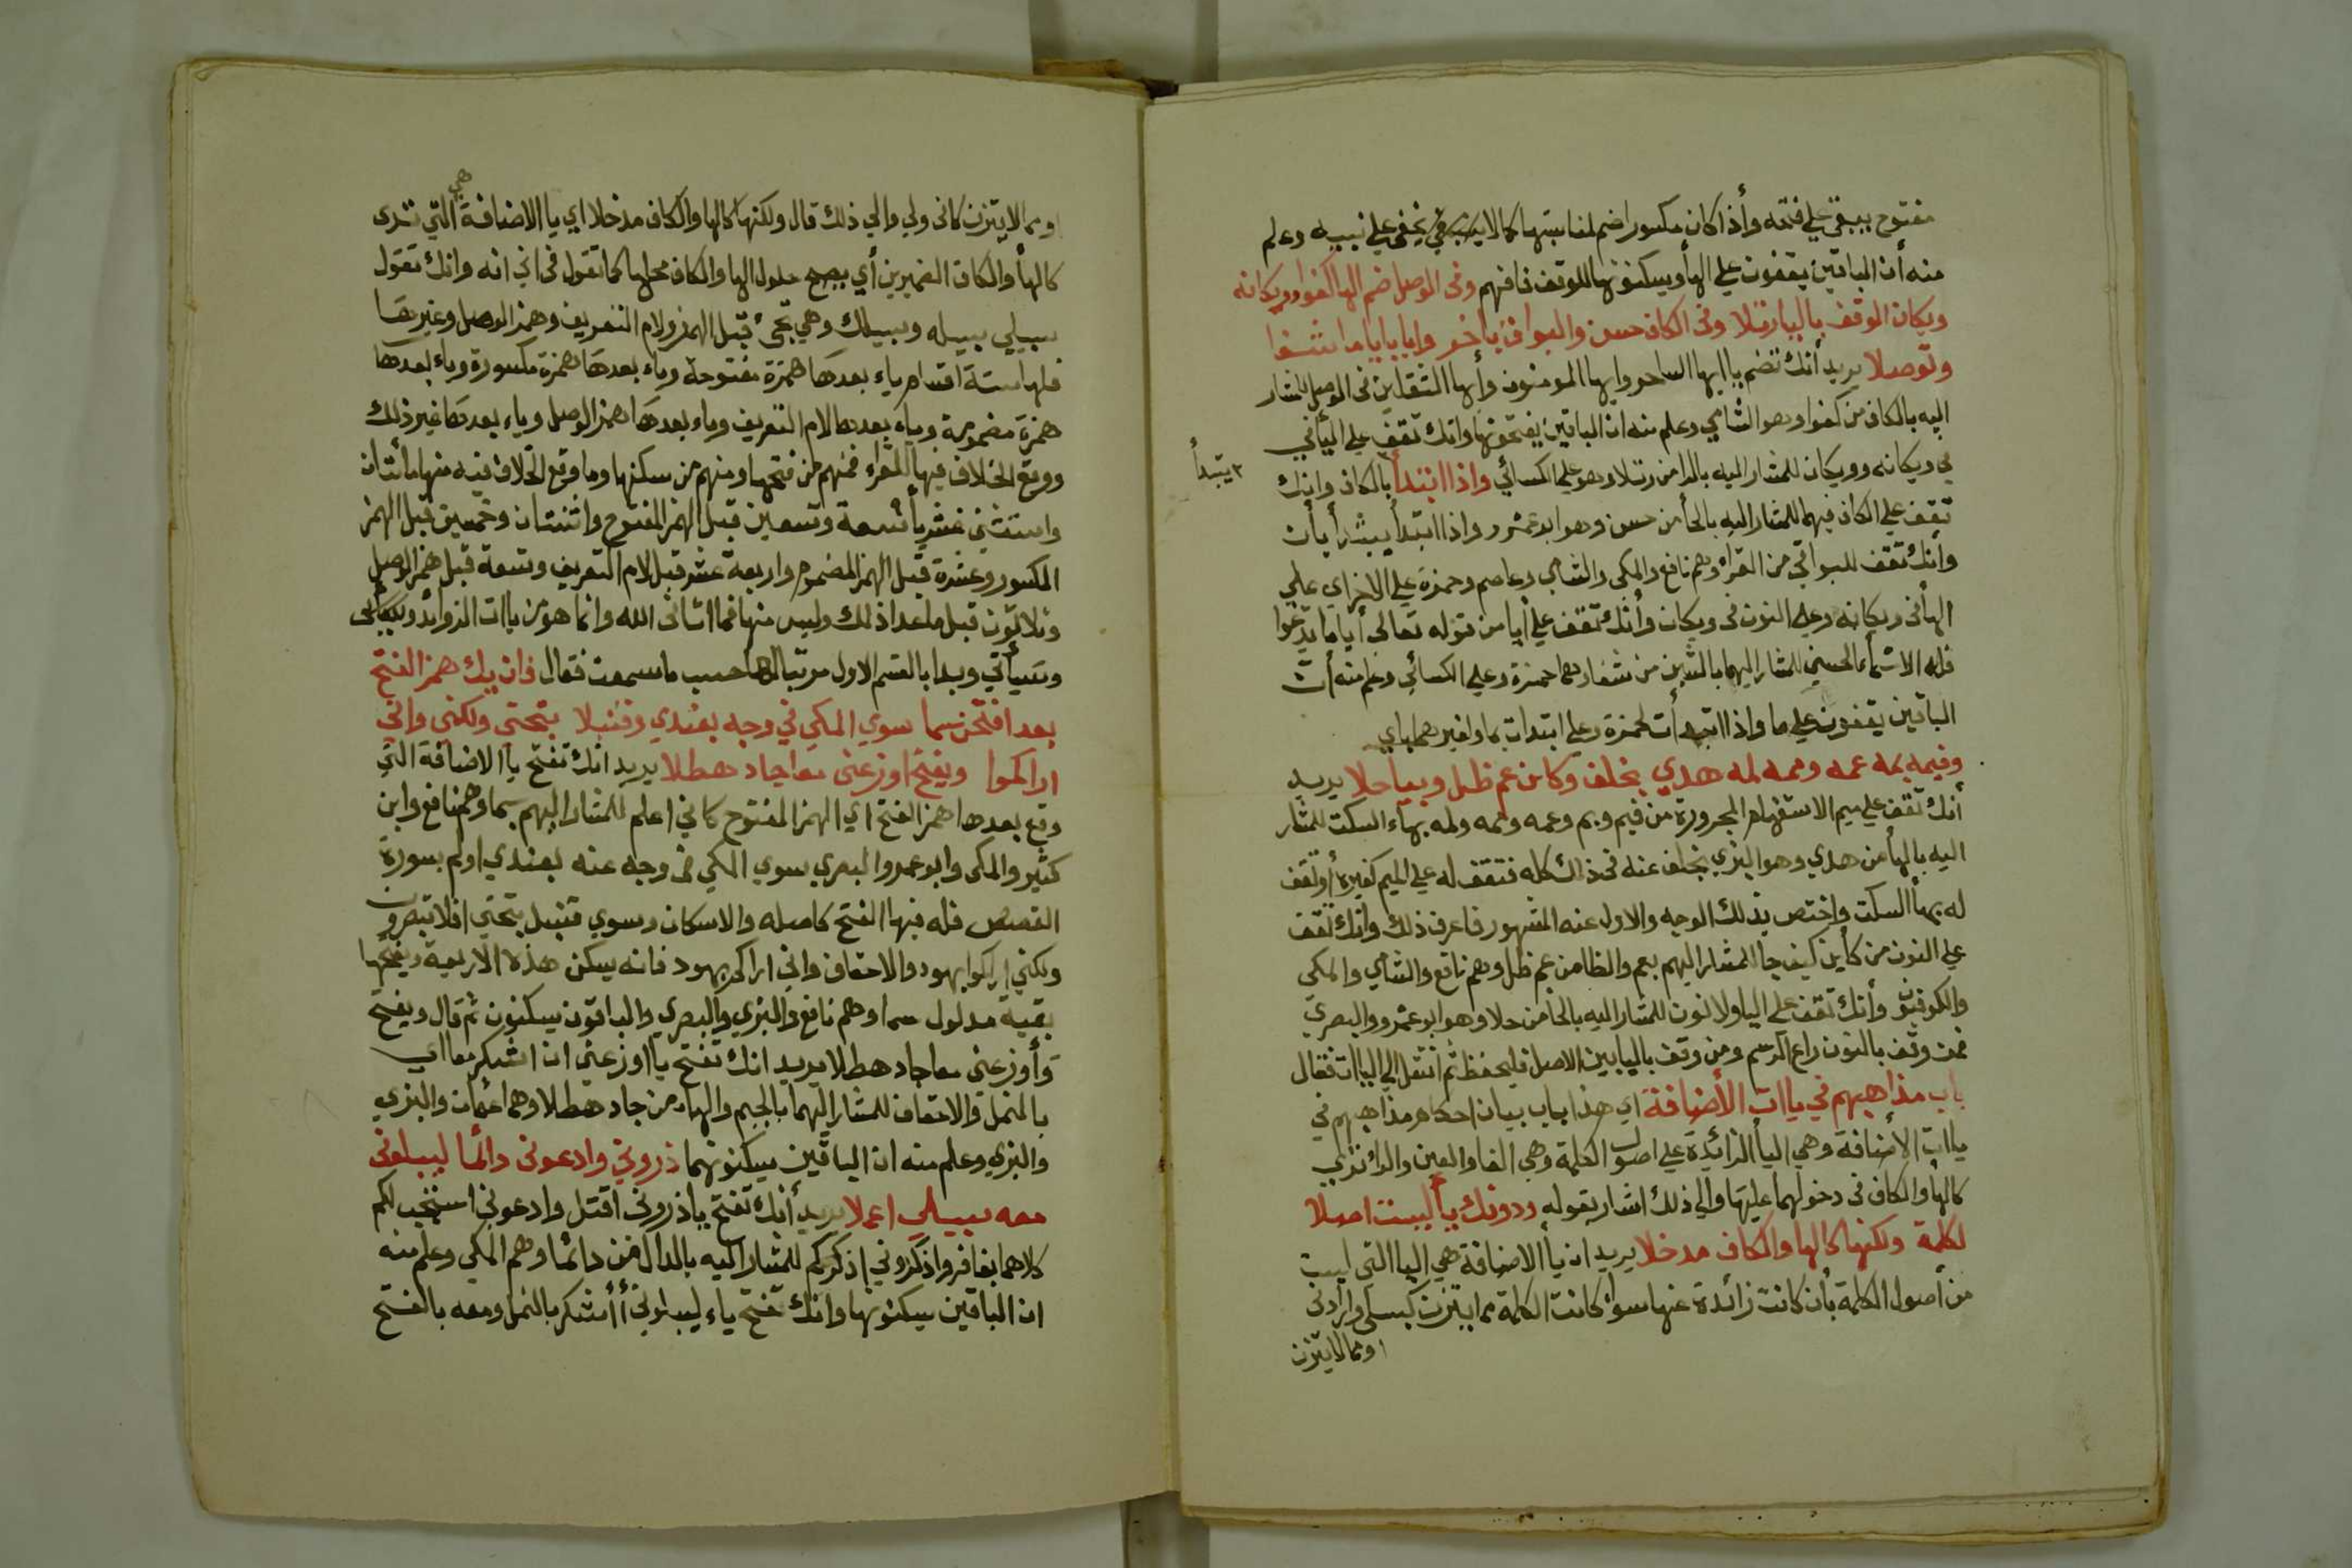 مفتوح يبقى علي فتحه وأذا كان مكسورا ضم لمناسبتها كما لا يخفي علي نبيه وعلم
منه أن الباقين يقفون علي الهأ ويسكنونها للوقف فافهم وفى الوصل ضم الها كفوا وويكانه
ويكان الوقف باليا رتلا وفى الكاف حسن والبواقي ياخر وايا بايا ما شفا
وتوصلا يريد أنك تضم ياايها الساحر وايها المومنون وأيها الثقلين فى الوصل للمشار
اليه بالكاف من كفوا وهو الشامي وعلم منه ان الباقين يفتحونها وانك تقف علي اليأ في
في ويكانه وويكان للمشار اليه بالرا من رتلا وهو علي الكسائي واذا ابتدأ بالكاف وانك
يبتدأ
تقف علي الكاف فيهما للمشار اليه بالحأ من حسن وهو ابو عمرو واذا ابتدأ يبتدأ بأن
وأنك تقف للبواقي من القرأ وهم نافع والمكى والشامي وعاصم وحمزة علي الاخر اي علي
الهأ فى ويكانه وعلي النون فى ويكان وأنك تقف علي أيا من قوله تعالى أياما تدعوا
فله الاسمأء الحسني للمشار اليهما بالشين من شفا وهما حمزة وعلي الكسائي وعلم منه أن
الباقين يقفون علي ما واذا ابتدأت لحمزة وعلي ابتدات بما ولغيرهما باي
وفيمه بمه عمه وممه لمه هدي بخلف وكاين عم ظل وبيا حلا يريد
أنك تقف علي ميم الاستفهام المجرورة من فيم وبم وعمه وممه ولمه بهاء السكت للمشار
اليه بالهأ من هدي وهو البزي بخلف عنه فى ذلك كله فتقف له علي الميم كغيره أو تقف
له بهأ السكت واختص بذلك الوجه والاول عنه المشهور فاعرف ذلك وانك تقف
علي النون من كأين كيف جا للمشار اليهم بعم والظا من عم ظل وهم نافع والشامي والمكي
والكوفيون وأنك تقف علي اليا ولا نون للمشار اليه بالحا من حلا وهو ابو عمرو والبصري
فمن وقف بالنون راع الرسم ومن وقف باليا بين الاصل فليحفظ ثم انتقل الي الياات فقال
باب مذاهبهم في ياات الأضافة اي هذا باب بيان احكام مذاهبهم في
ياات الأضافة وهي اليأ الزائدة علي اصول الكلمة وهي الفا والعين واللام تري
كالهأ والكاف فى دخولهما عليها والي ذلك اشار بقوله ودونك يأ ليست اصلا
لكلمة ولكنها كالها والكاف مدخلا يريد ان يأ الاضافة هي اليا التى ليست
من أصول الكلمة بأن كانت زائدة عنها سواء كانت الكلمة مما يتزن كسبيلي وارادنى
او مما لا يتزن
او مما لا يتزن كانى ولي والي ذلك قال ولكنها كالها والكاف مدخلا اي يا الاضافة هي التي ترى
كالهأ والكاف الضميرين أي يصح حلول الها والكاف محلها كما تقول فى اني انه وانك تقول
سبيلي سبيله وسبيلك وهي تجئ قبل الهمز ولام التعريف وهمز الوصل وغيرها
فلها ستة اقسام ياء بعدها همزة مفتوحة وياء بعدها همزة مكسورة وياء بعدها
همزة مضمومة وياء بعدها لام التعريف وياء بعدها همز الوصل وياء بعدها غير ذلك
ووقع الخلاف فيها للقراء فمنهم من فتحها ومنهم من سكنها وما وقع الخلاف فيه منها مأتان
واثنتي عشر يأ تسعة وتسعين قبل الهمز المفتوح واثنتان وخمسين قبل الهمز
المكسور وعشرة قبل الهمز المضموم واربعة عشر قبل لام التعريف وتسعة قبل همز الوصل
وثلاثون قبل ما عدا ذلك وليس منها فما اتانى الله وانما هو من ياات الزوايد
وسيأتي وبدا بالقسم الاول مرتبا لها حسب ما سمعت فقال فان يك همز الفتح
بعد افتحن سما سوي المكي في وجه بعندي وقنبلا بتحتى ولكنى واني
اراكموا ويفتح اوزعنى معا جاد هطلا يريد انك تفتح يا الاضافة التي
وقع بعدها همز الفتح اي الهمز المفتوح كاني اعلم للمشار اليهم بسما وهم نافع وابن
كثير والمكى وابو عمرو البصري سوي المكي فى وجه عنه بعندي اولم بسورة
القصص فله فيها الفتح كاصله والاسكان وسوي قنبل بتحتي افلا تبصرون
ولكني اراكم بهود والاحقاف واني اراكم بهود فانه يسكن هذه الاربعة ويفتحها
بقية مدلول سما وهم نافع والبزي والبصري والباقون يسكنون ثم قال ويفتح
وأوزعنى معا جاد هطلا يريد انك تفتح يا اوزعني ان اشكر معا اي
بالنمل والاحقاف للمشار اليهما بالجيم والهاء من جاد هطلا وهما عثمان والبزي
والبزي وعلم منه ان الباقين يسكنونهما ذروني وادعونى دائما ليبلونى
معه سبيلي اعملا يريد أنك تفتح يا ذرونى اقتل وادعوني استجب لكم
كلاهما بغافر واذكروني اذكركم للمشار اليه بالدال من دائما وهم المكي وعلم منه
ان الباقين يسكنونها وانك تفتح ياء ليبلوني أأشكر بالنمل ومعه بالفتح